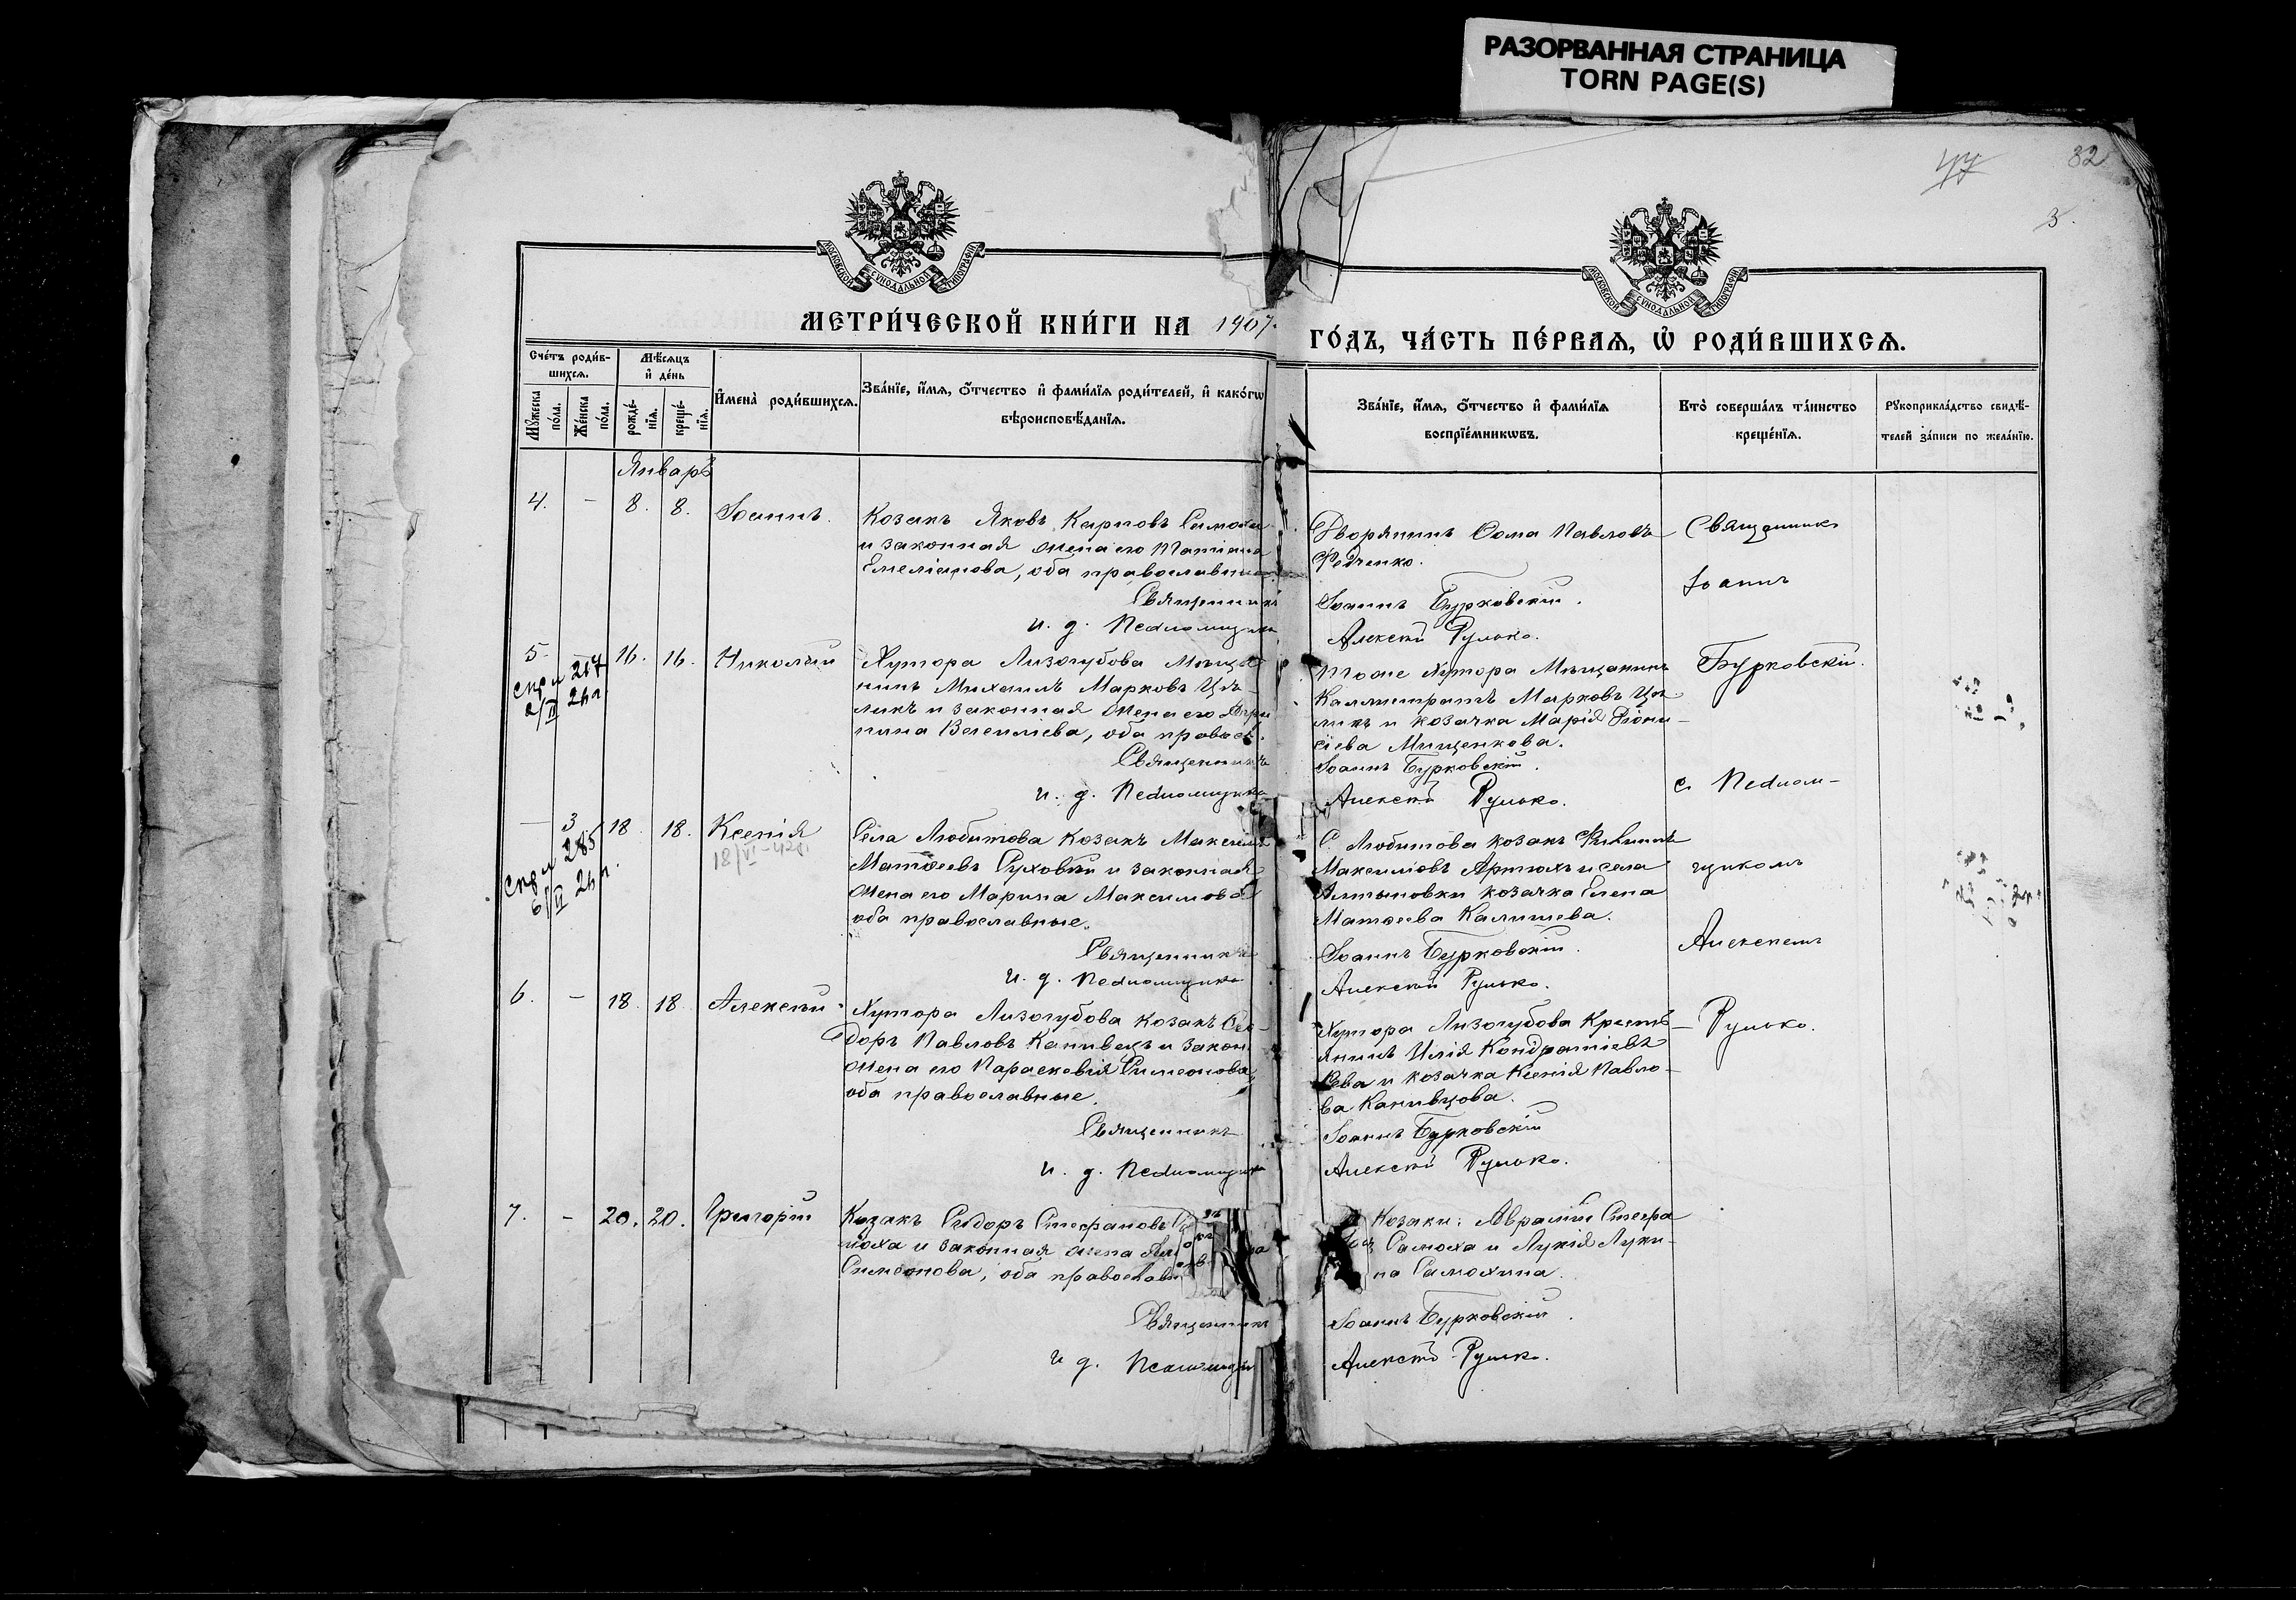 РАЗОРВАННАЯ СТРАНИЦА
TORN PAGE(S)
82
3.
МОСКОВСКОЙ СѴНОДАЛЬНОЙ ТИПОГРАФІИ
МОСКОВСКОЙ СѴНОДАЛЬНОЙ ТИПОГРАФІИ
МЕТРИ́ЧЕСКОЙ КНИ́ГИ НА 1907
ГО́ДЪ, ЧА́СТЬ ПЕ́РВАЯ, Ѡ҆ РОДИ́ВШИХСѦ.
Сче́тъ роди́в-
шихсѧ.
Мѣ́сѧцъ
и҆ де́нь
Мꙋ́жеска
по́ла.
Же́нска
по́ла.
рожде́-
нїѧ.
креще́-
нїѧ.
И҆мена̀ роди́вшихсѧ.
Зва́нїе, и҆́мѧ, ѻ҆́тчество и҆ фами́лїѧ роди́телей, и҆ како́гѡ
вѣроисповѣ́данїѧ.
Зва́нїе, и҆́мѧ, ѻ҆́тчество и҆ фами́лїѧ
воспрїе́мникѡвъ.
Кто̀ соверша́лъ та́инство
креще́нїѧ.
Рꙋкоприкла́дство свидѣ́-
телей за́писи по жела́нїю.
Январь
4. - 8. 8. Іоаннъ.
Козакъ Яковъ Карповъ Самоха
и законная жена его Татіана
Емеліанова, оба православные
Священникъ
и. д. Псаломщика
Дворянинъ Ѳома Павловъ
Федченко.
Іоаннъ Бурковскій.
Алексѣй Рулько.
Священникъ
Іоаннъ
Бурковскій.
с. Псалом-
щикомъ
Алексѣемъ
Рулько.
5. 16. 16. Николай
2/II 24 г
Хутора Лизогубова Мѣща-
нинъ Михаилъ Марковъ Ца-
ликъ и законная жена его Агри
пина Василіева, оба правосл.
Священникъ
и. д. Псаломщика
Тоже Хутора Мѣщанинъ
Каллистратъ Марковъ Ца
ликъ и козачка Марія Діони-
сіева Мищенкова.
Іоаннъ Бурковскій.
Алексѣй Рулько.
- 3 18 18. Ксенія
285
18/VI-42г.
6/II 24 г.
Села Любитова козакъ Максимъ
Матѳеевъ Суховѣй и законная
жена его Марина Максимова
оба православные.
Священникъ
и. д. Псаломщика
С. Любитова козакъ Филиппъ
Максимовъ Артюхъ и села
Алтыновки козачка Елена
Матѳеева Калишева.
Іоаннъ Бурковскій.
Алексѣй Рулько.
6. - 18 18. Алексѣй
Хутора Лизогубова козакъ Ѳео-
доръ Павловъ Канивецъ и закон
жена его Параскевія Симеонова,
оба православные.
Священникъ
и. д. Псаломщика
Хутора Лизогубова Кресть-
янинъ Илія Кондратіевъ
Сева и козачка Ксенія Павло-
ва Канивцова.
Іоаннъ Бурковскій
Алексѣй Рулько.
7. - 20. 20. Григорій
Козакъ Сидоръ Стефановъ
моха и законная жена
Симеонова, оба православн
Священникъ
и д. Псаломщи
Козаки: Авраамій Стефа
Самоха и Лукія Луки-
на Самохина.
Іоаннъ Бурковскій.
Алексѣй Рулько.